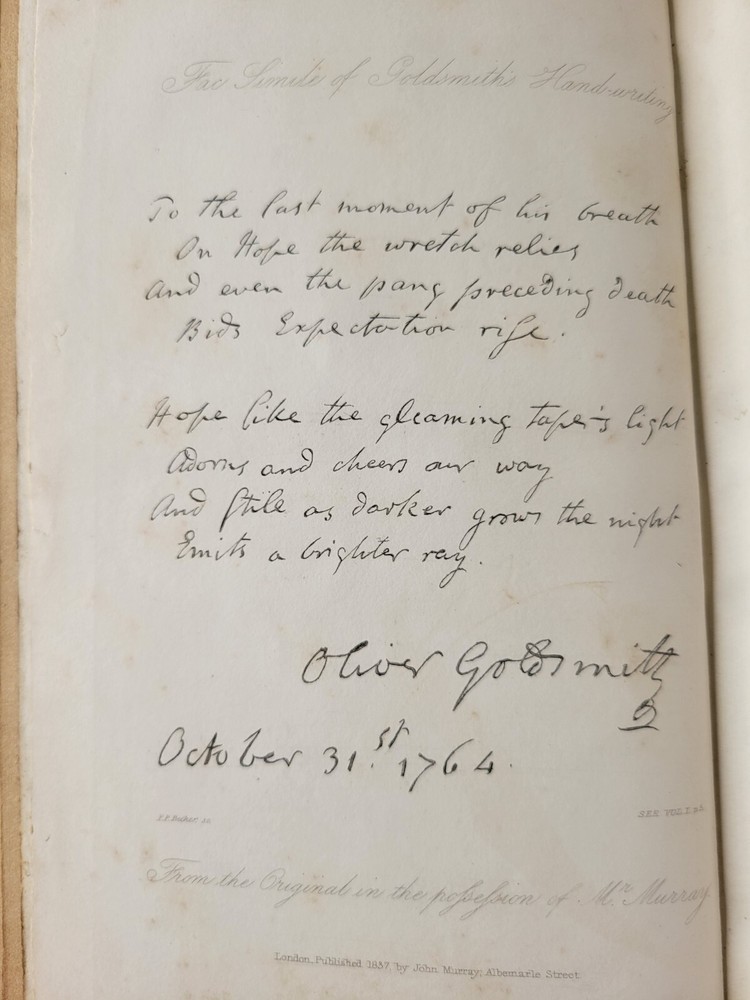 Fac Simile of Goldsmith's Hand-writing
To the last moment of his breath
On Hope the wretch relies
And even the pang preceding death
Bids Expectation rise.
Hope like the gleaming taper's light
Adorns and cheers our way
And still as darker grows the night
Emits a brighter ray.
Oliver Goldsmith
October 31.st 1764.
SEE VOL. I.
From the Original in the possession of Mr. Murray
London, Published 1837, by John Murray, Albemarle Street